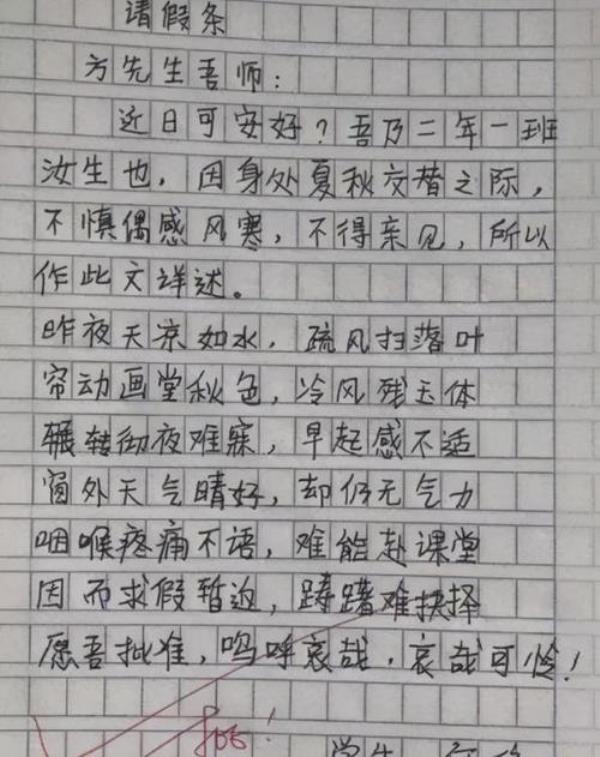 请假条
方先生吾师：
近日可安好？吾乃二年一班
汝生也，因身处夏秋交替之际，
不慎偶感风寒，不得亲见，所以
作此文详述。
昨夜天凉如水，疏风扫落叶
帘动画堂秋色，冷风残玉体
辗转彻夜难寐，早起感不适
窗外天气晴好，却仍无气力
咽喉疼痛不语，难能赴课堂
因而求假暂迫，踌躇难抉择
愿吾批准，呜呼哀哉，哀哉可怜！
学生